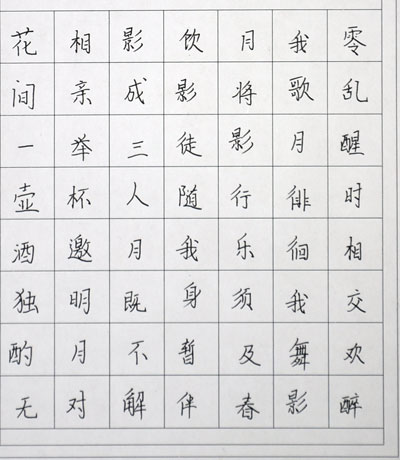 花间一壶酒独酌无
相亲举杯邀明月对
影成三人月既不解
饮影徒随我身暂伴
月将影行乐须及春
我歌月徘徊我舞影
零乱醒时相交欢醉